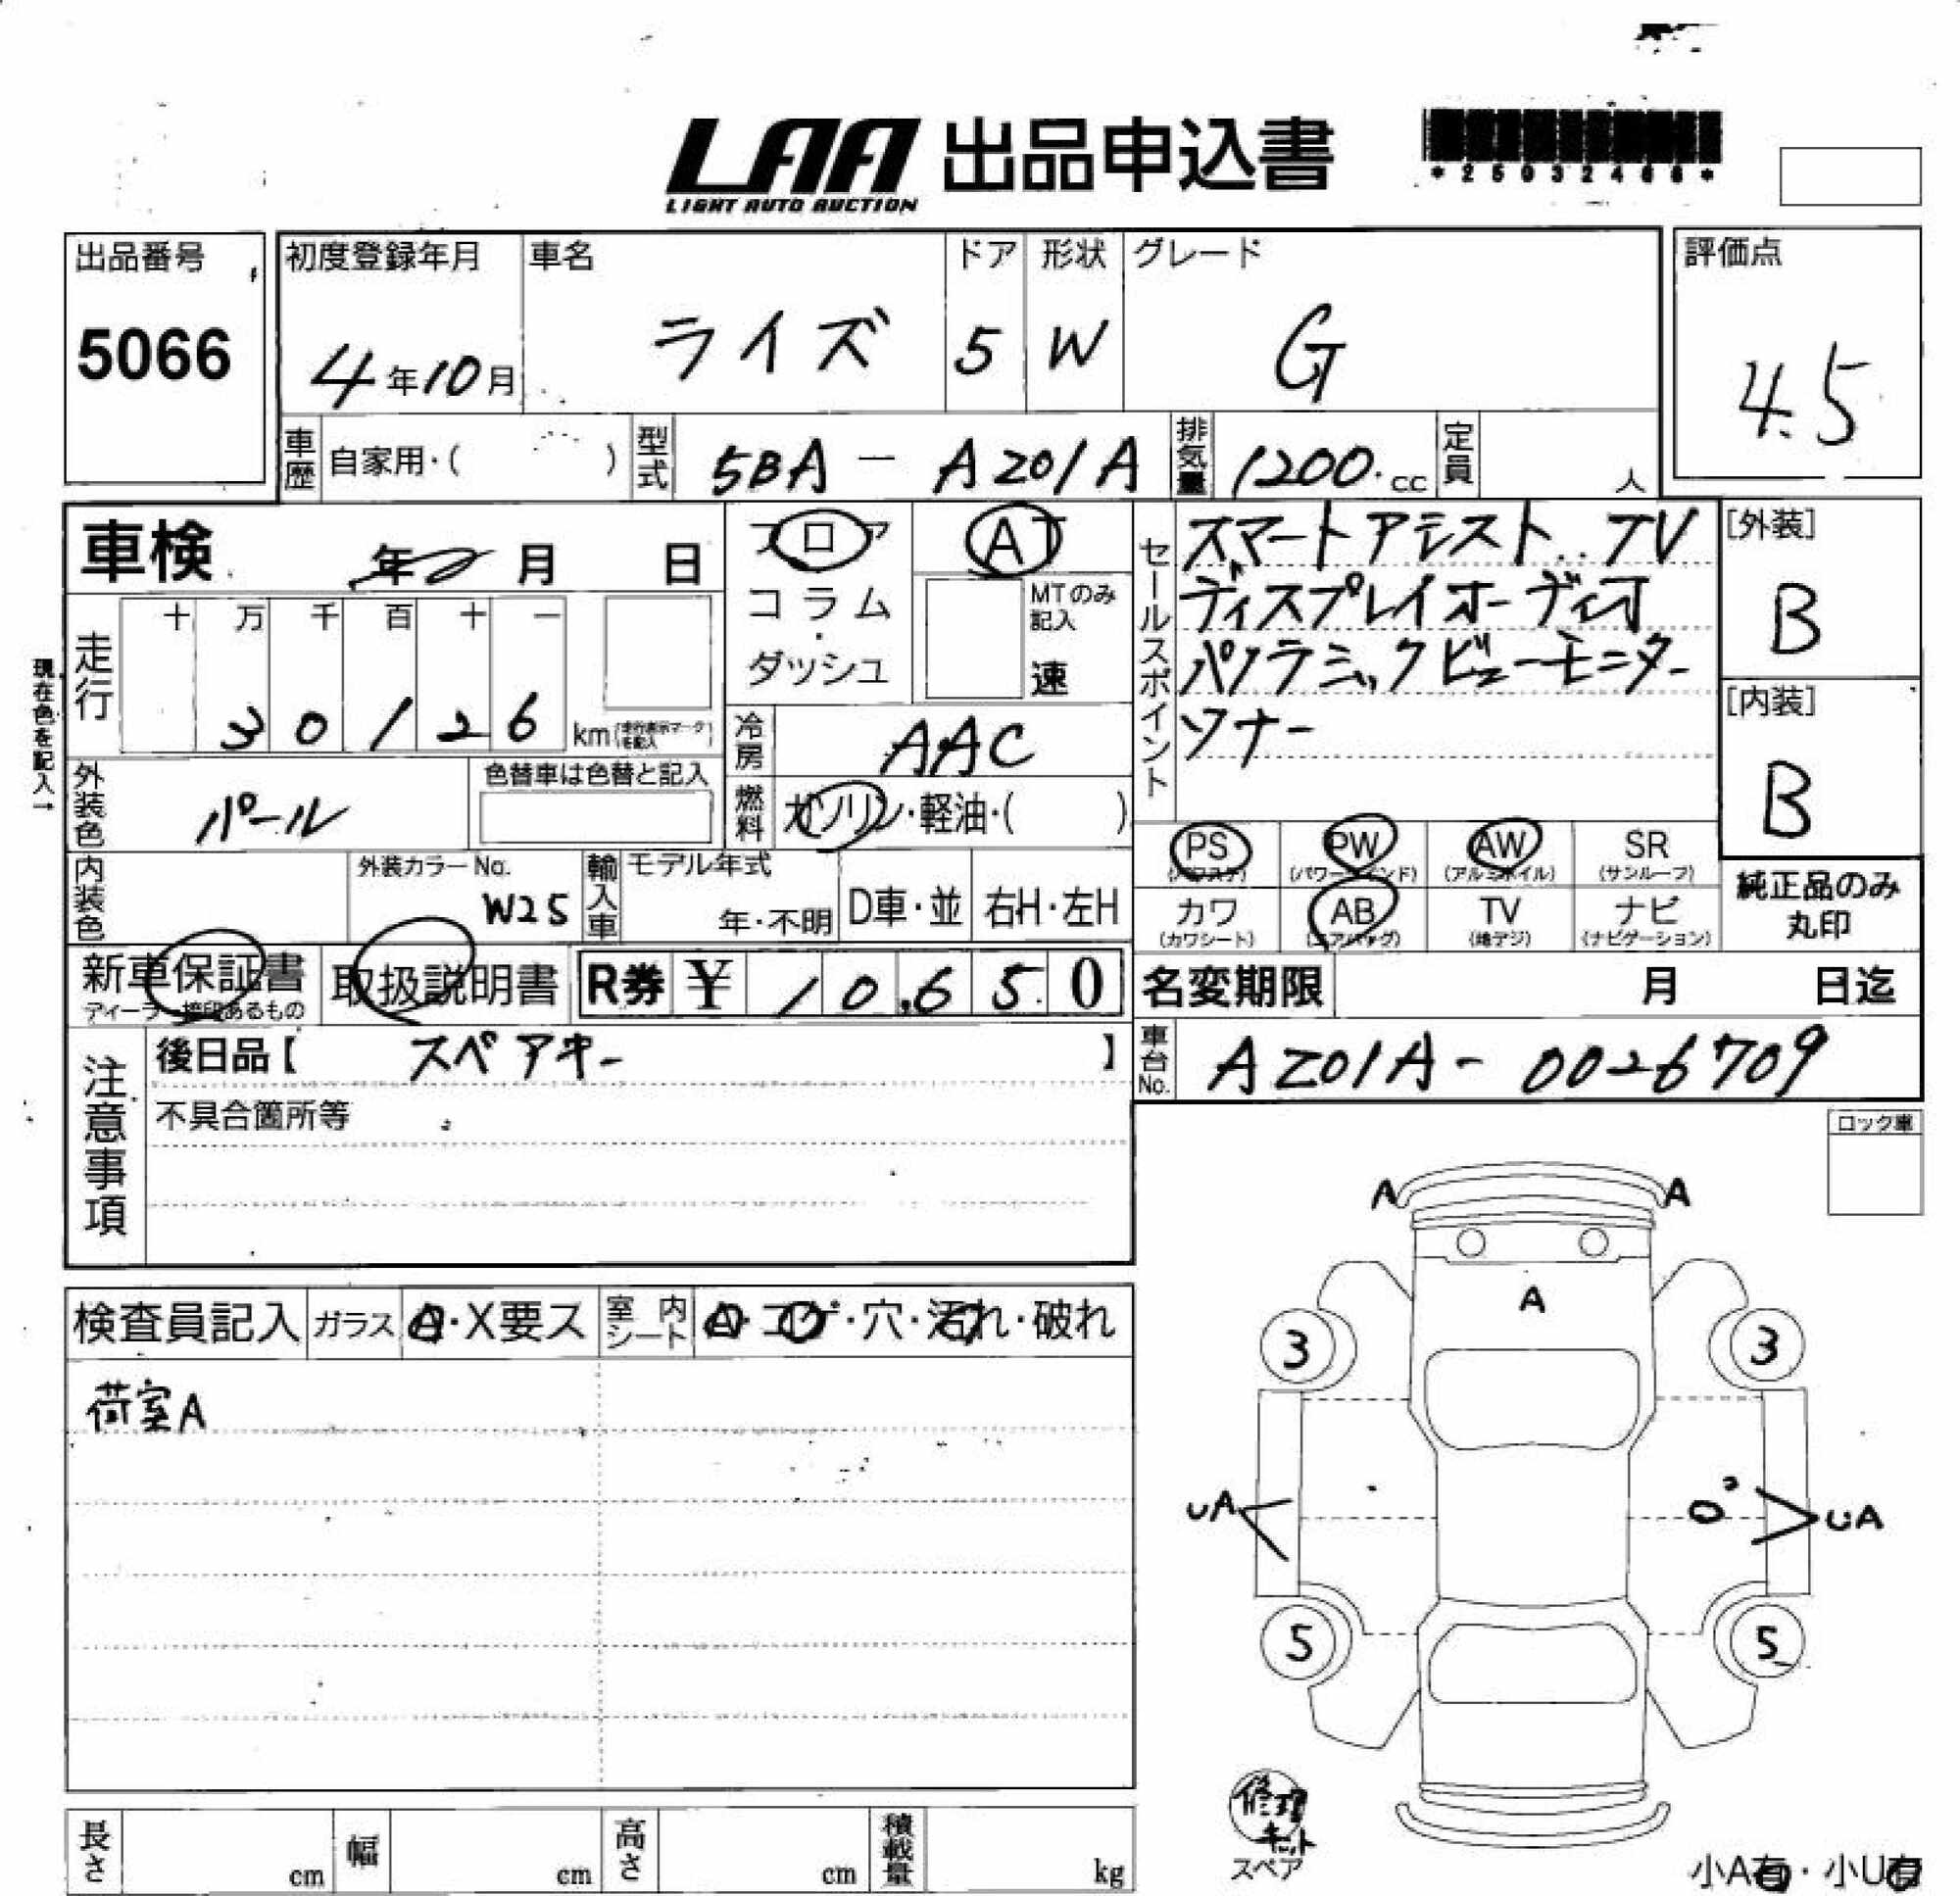 LAA 出品申込書
LIGHT AUTO AUCTION
出品番号
5066
初度登録年月
4年10月
車名
ライズ
ドア
5
形状
W
グレード
G
評価点
4.5
車歴
自家用・( )
型式
5BA - A201A
排気量
1200.cc
定員
人
車検
年 月 日
走行
十 万 千 百 十 一
3 0 1 2 6
km
現在色を記入→
フロア
コラム
・
ダッシュ
AT
MTのみ
記入
速
冷房
AAC
燃料
ガソリン・軽油・( )
セールスポイント
スマートアシスト . TV
ディスプレイオーディオ
パノラミックビューモニター
ソナー
[外装]
B
[内装]
B
外装色
パール
色替車は色替と記入
内装色
外装カラーNo.
W25
輸入車
モデル年式
年・不明
D車・並
右H・左H
PS
(パワステ)
PW
(パワーウインド)
AW
(アルミホイル)
SR
(サンルーフ)
カワ
(カワシート)
AB
(エアバッグ)
TV
(地デジ)
ナビ
(ナビゲーション)
純正品のみ
丸印
新車保証書
取扱説明書
R券 ¥ 10,650
名変期限
月 日迄
車台No.
AZ01A- 0026709
注意事項
後日品【 スペアキー 】
不具合箇所等
ロック車
検査員記入
ガラス
A・X要ス
室内シート
A・コゲ・穴・汚れ・破れ
荷室A
A A
A
3 3
UA UA
5 5
修理
キット
スペア
小A有・小U有
長さ
cm
幅
cm
高さ
cm
積載量
kg